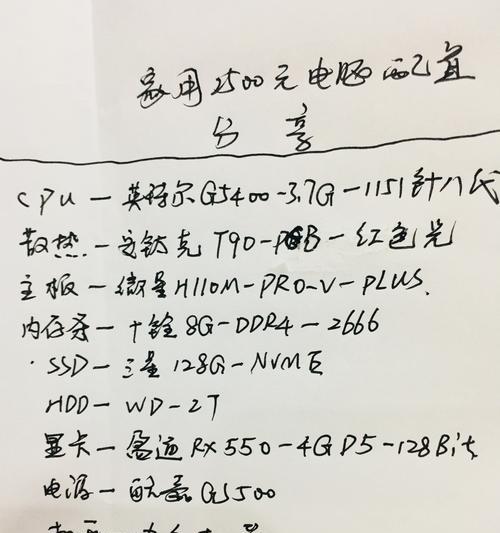 家用2500元电脑配置
分享
CPU—英特尔G5400-3.7G-1151针八代
散热—安钛克T90-PGB-红色光
主板—微星H110M-PRO-V-PLUS.
内存条—十铨8G-DDR4-2666
·SSD—三星128G-NVME
HDD—WD-2T
显卡—盈通RX550-4GD5-128Bit
电源—航嘉GS500